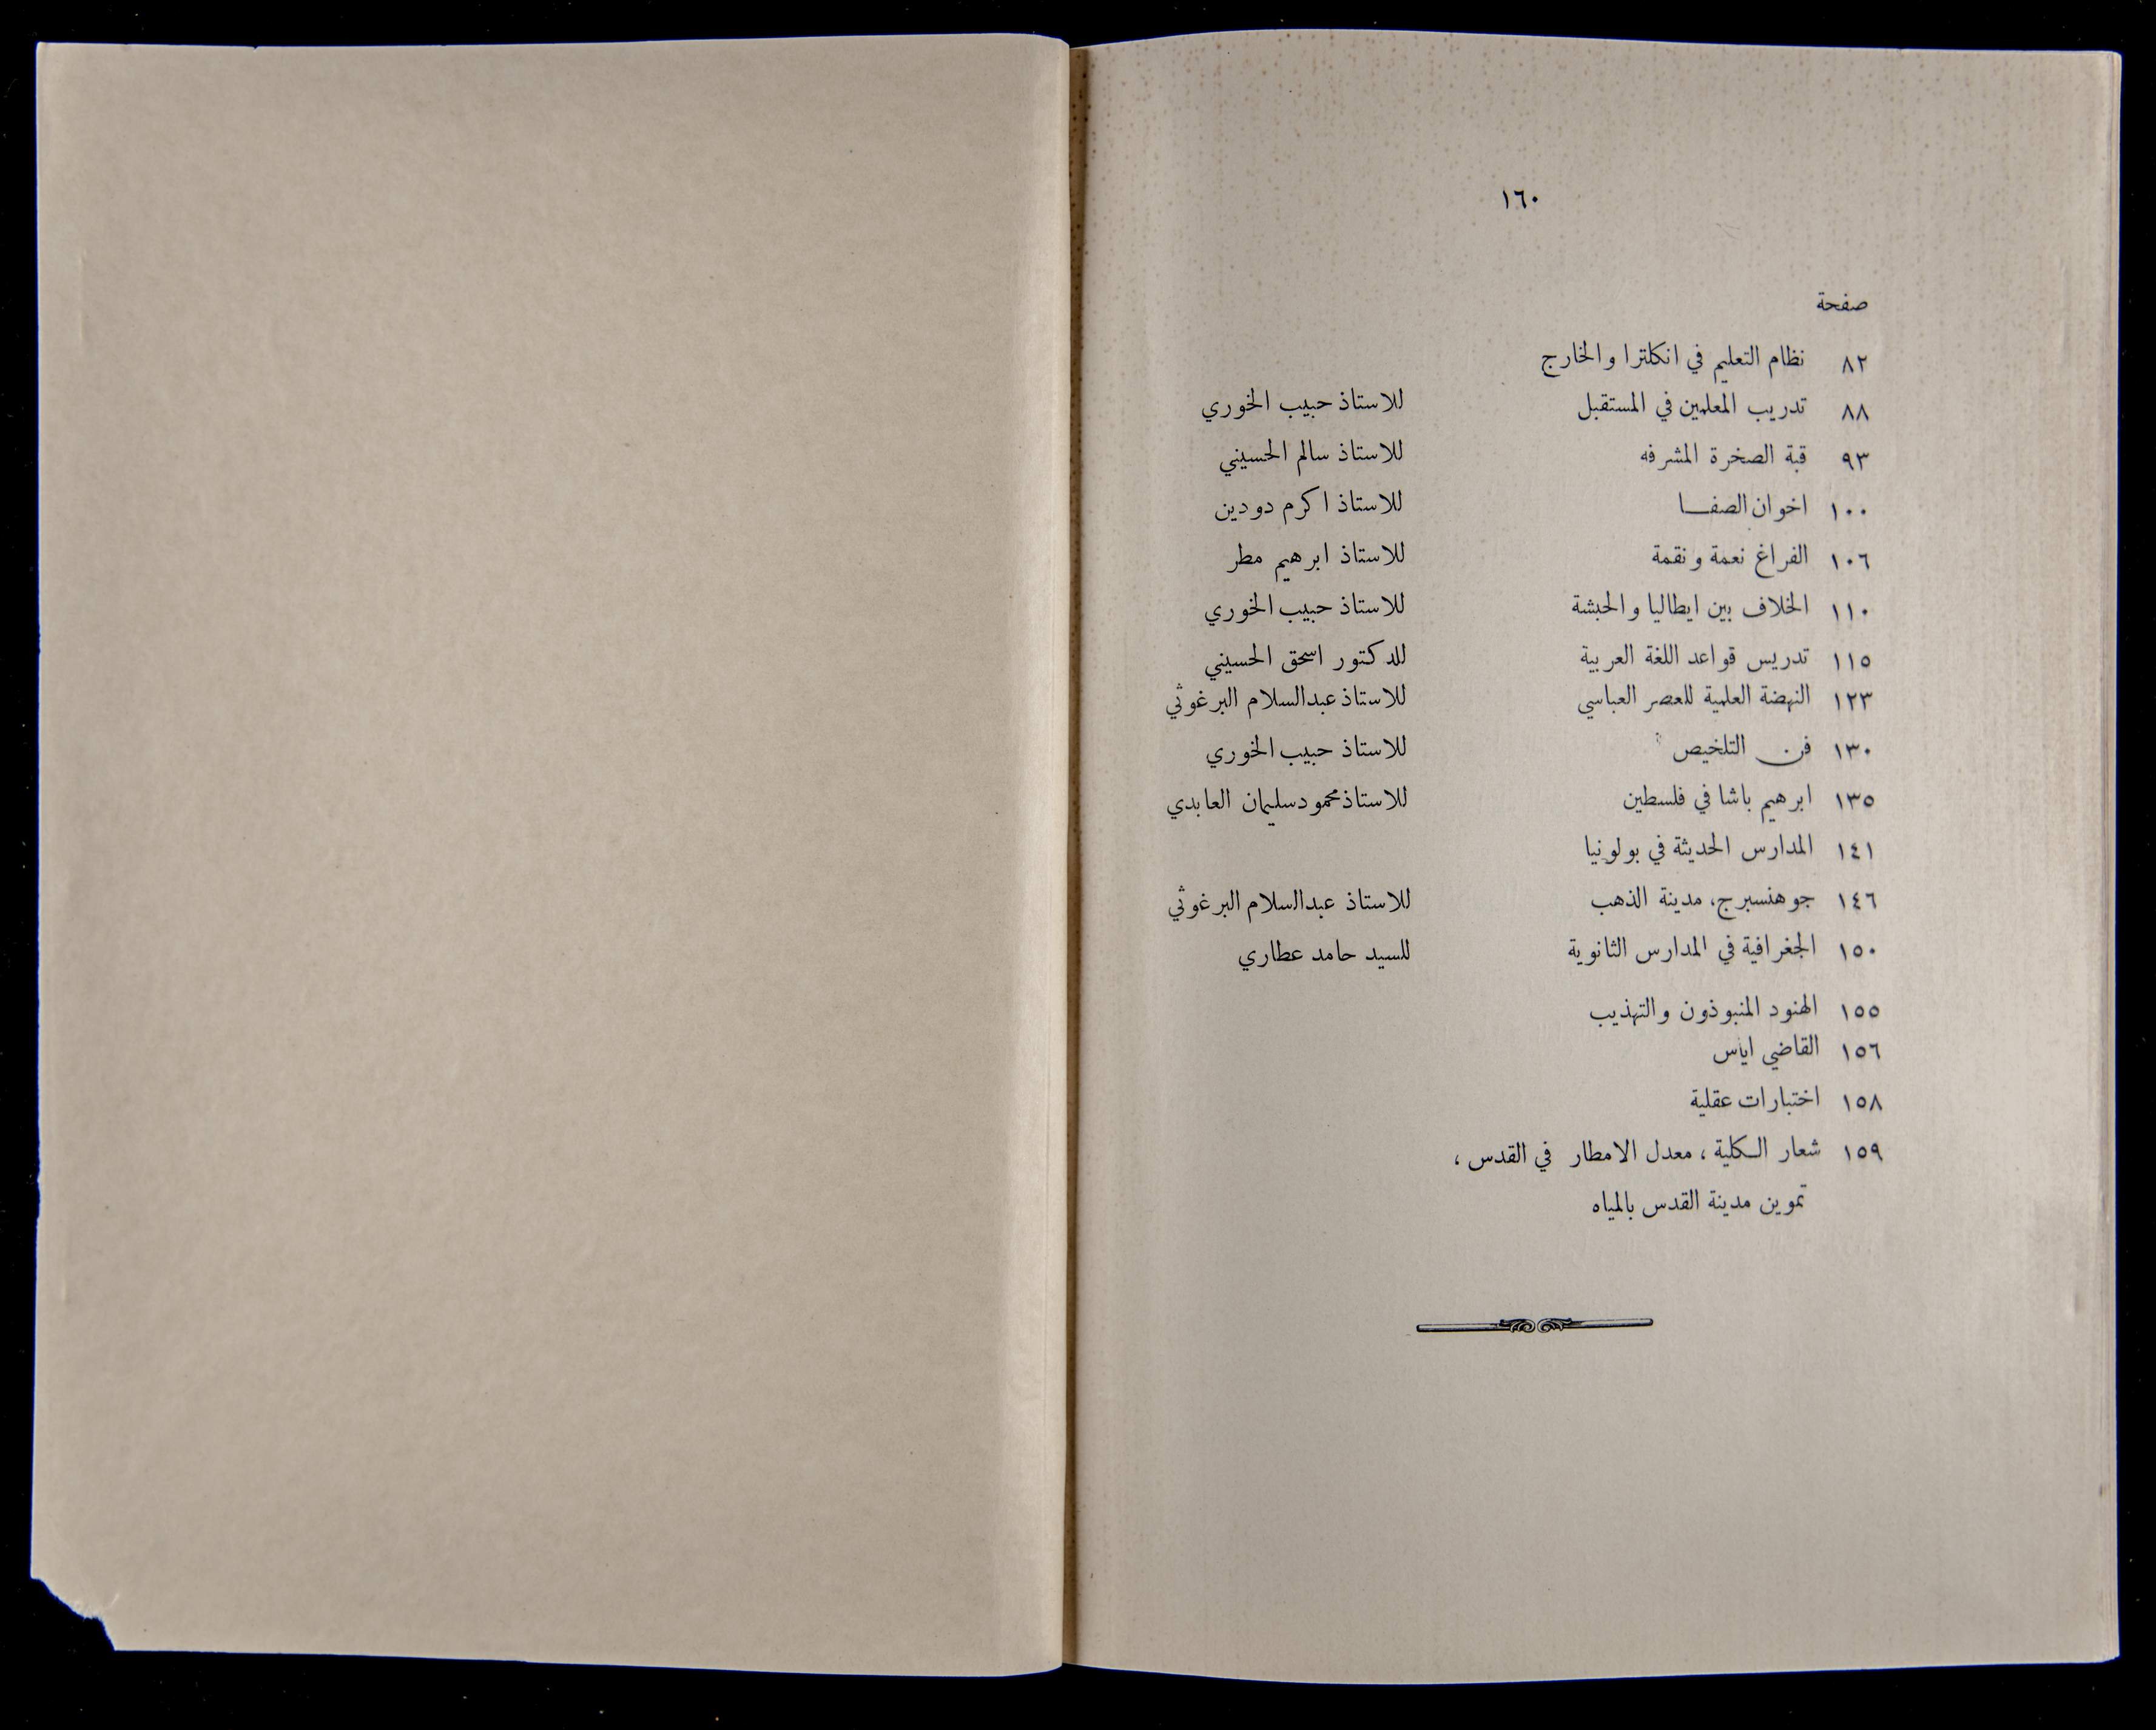 ١٦٠
صفحة
٨٢ نظام التعليم في انكلترا والخارج
٨٨ تدريب المعلمين في المستقبل للاستاذ حبيب الخوري
٩٣ قبة الصخرة المشرفه للاستاذ سالم الحسيني
١٠٠ اخوان الصفـــا للاستاذ اكرم دودين
١٠٦ الفراغ نعمة ونقمة للاستاذ ابرهيم مطر
١١٠ الخلاف بين ايطاليا والحبشة للاستاذ حبيب الخوري
١١٥ تدريس قواعد اللغة العربية للدكتور اسحق الحسيني
١٢٣ النهضة العلمية للعصر العباسي للاستاذ عبدالسلام البرغوثي
١٣٠ فن التلخيص للاستاذ حبيب الخوري
١٣٥ ابرهيم باشا في فلسطين للاستاذ محمود سليمان العابدي
١٤١ المدارس الحديثة في بولونيا
١٤٦ جوهنسبرج، مدينة الذهب للاستاذ عبدالسلام البرغوثي
١٥٠ الجغرافية في المدارس الثانوية للسيد حامد عطاري
١٥٥ الهنود المنبوذون والتهذيب
١٥٦ القاضي اياس
١٥٨ اختبارات عقلية
١٥٩ شعار الـكلية ، معدل الامطار في القدس ،
تموين مدينة القدس بالمياه